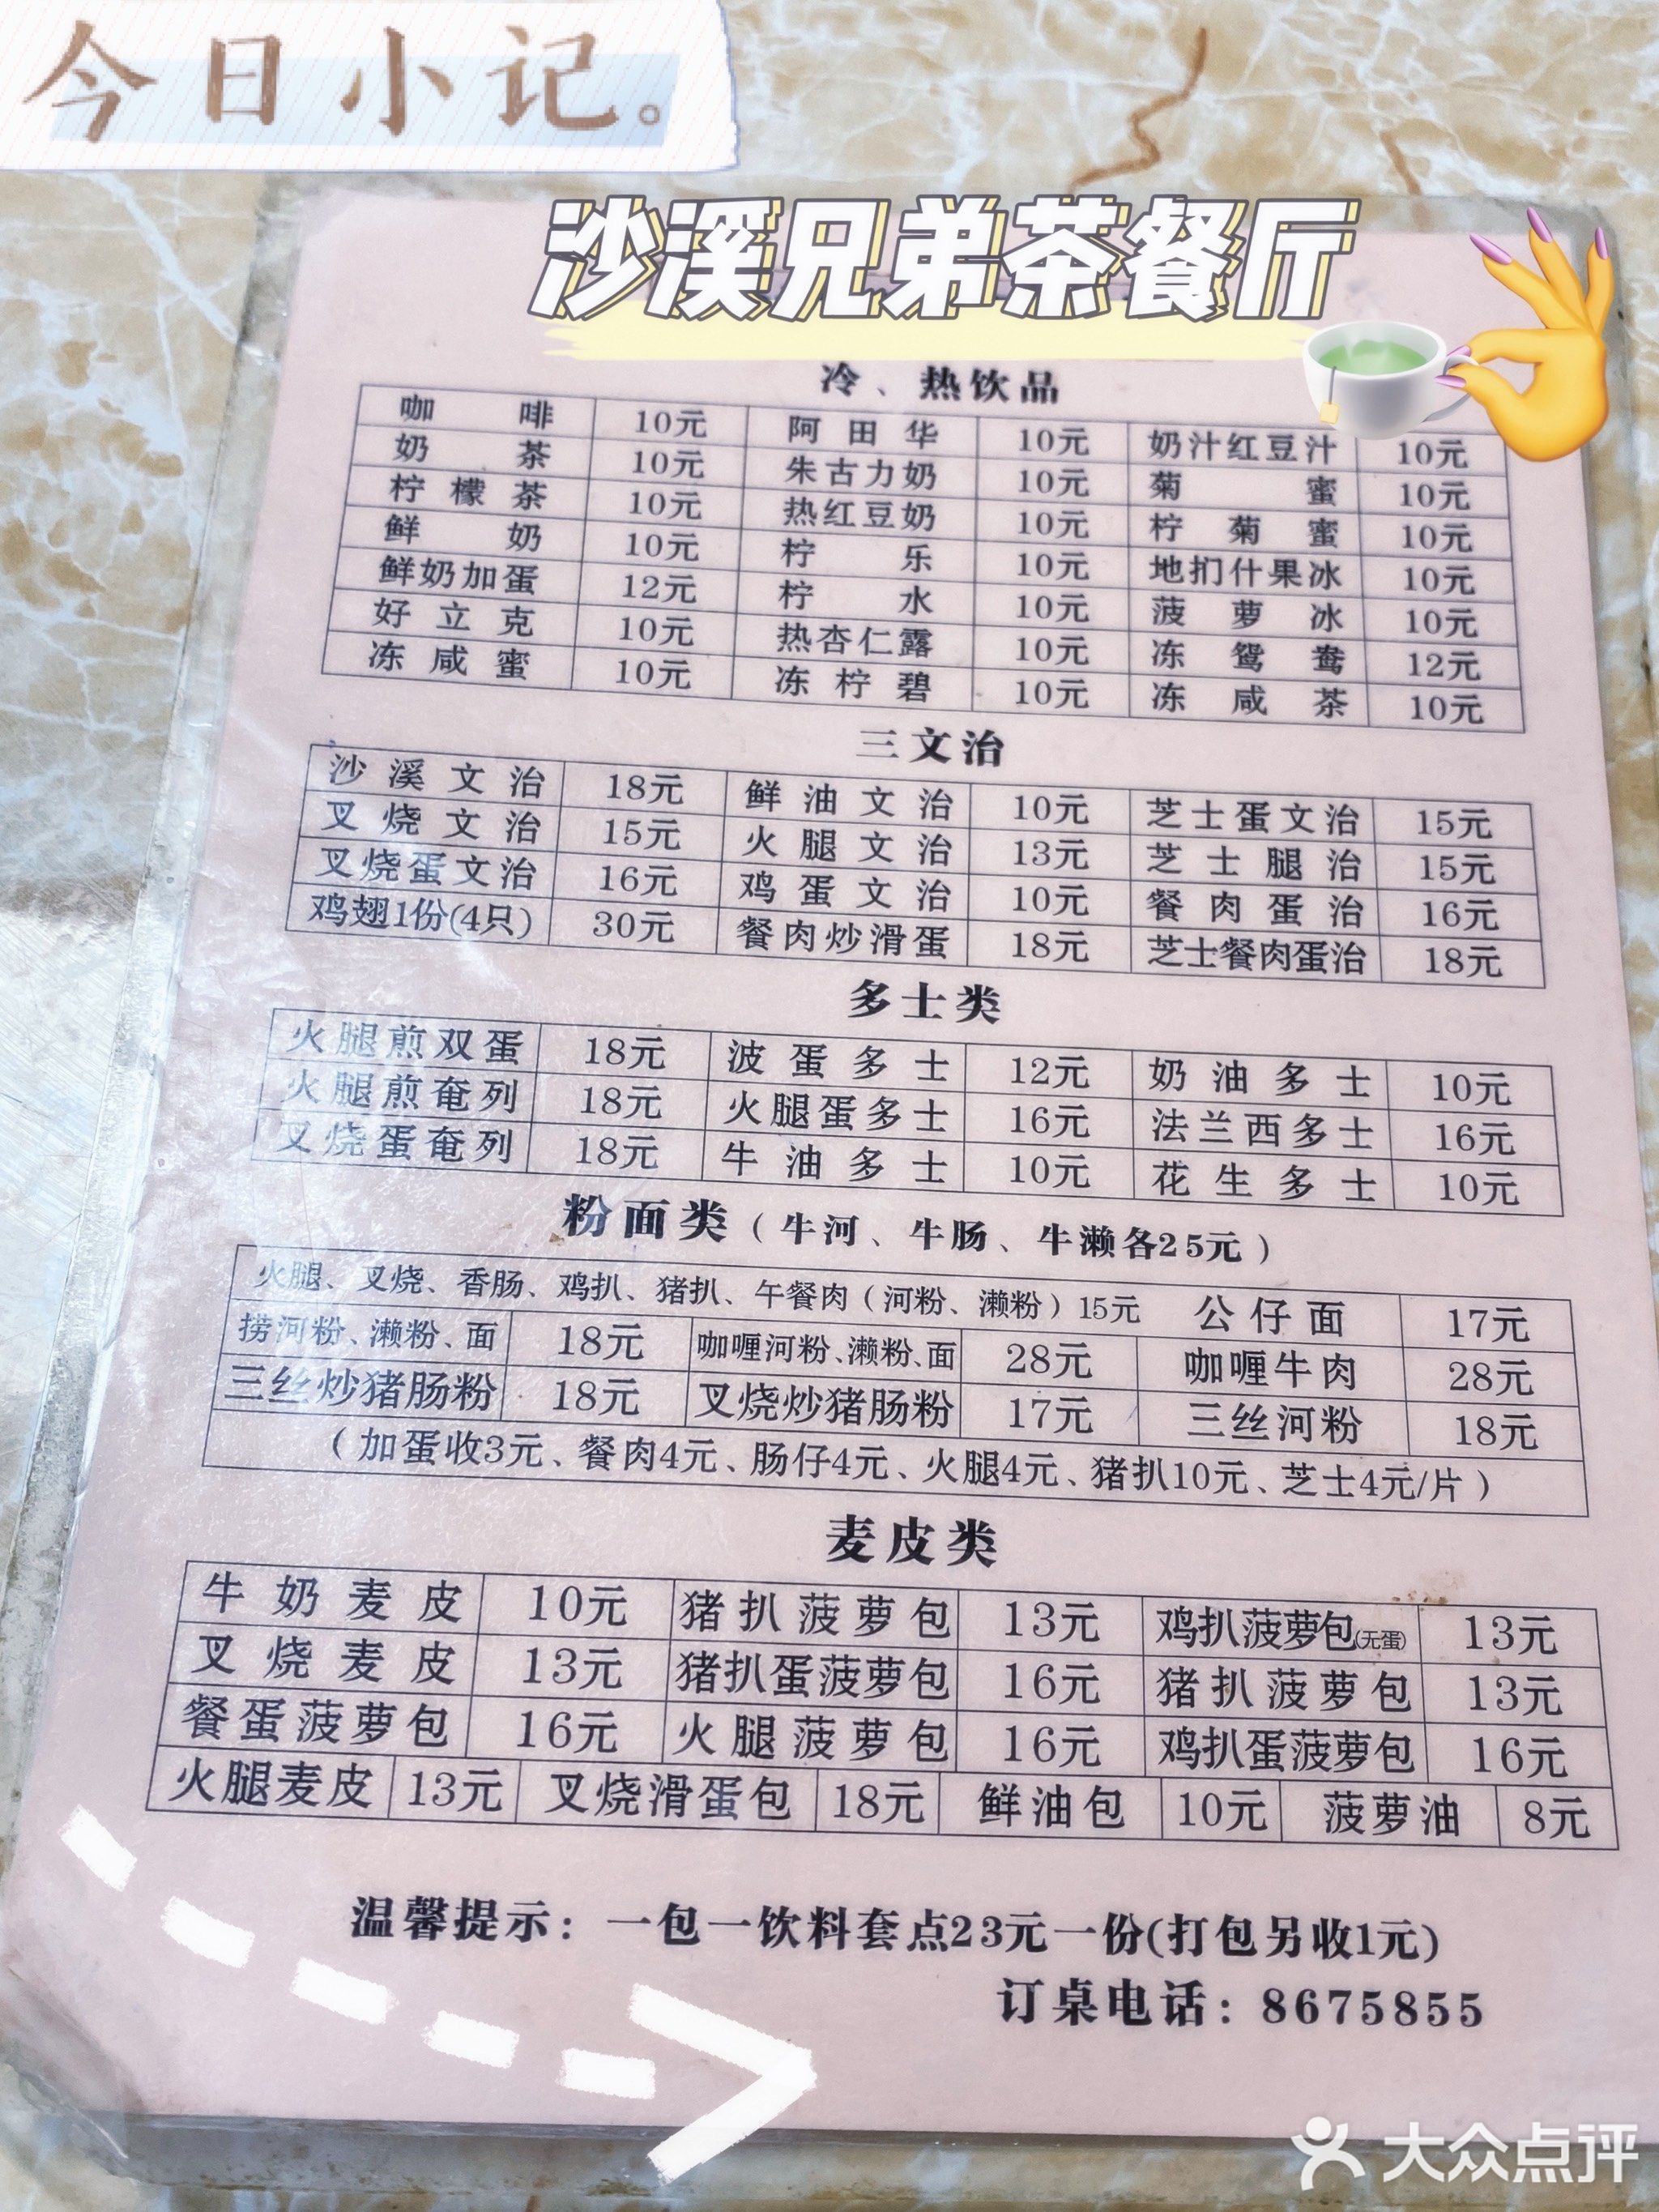 今日小记。
沙溪兄弟茶餐厅
冷、热饮品
咖啡 10元 阿田华 10元 奶汁红豆汁 10元
奶茶 10元 朱古力奶 10元 菊蜜 10元
柠檬茶 10元 热红豆奶 10元 柠菊蜜 10元
鲜奶 10元 柠乐 10元 地扪什果冰 10元
鲜奶加蛋 12元 柠水 10元 菠萝冰 10元
好立克 10元 热杏仁露 10元 冻鸳鸯 12元
冻咸蜜 10元 冻柠碧 10元 冻咸茶 10元
三文治
沙溪文治 18元 鲜油文治 10元 芝士蛋文治 15元
叉烧文治 15元 火腿文治 13元 芝士腿治 15元
叉烧蛋文治 16元 鸡蛋文治 10元 餐肉蛋治 16元
鸡翅1份(4只) 30元 餐肉炒滑蛋 18元 芝士餐肉蛋治 18元
多士类
火腿煎双蛋 18元 波蛋多士 12元 奶油多士 10元
火腿煎奄列 18元 火腿蛋多士 16元 法兰西多士 16元
叉烧蛋奄列 18元 牛油多士 10元 花生多士 10元
粉面类(牛河、牛肠、牛濑各25元)
火腿、叉烧、香肠、鸡扒、猪扒、午餐肉(河粉、濑粉)15元 公仔面 17元
捞河粉、濑粉、面 18元 咖喱河粉、濑粉、面 28元 咖喱牛肉 28元
三丝炒猪肠粉 18元 叉烧炒猪肠粉 17元 三丝河粉 18元
(加蛋收3元、餐肉4元、肠仔4元、火腿4元、猪扒10元、芝士4元/片)
麦皮类
牛奶麦皮 10元 猪扒菠萝包 13元 鸡扒菠萝包(无蛋) 13元
叉烧麦皮 13元 猪扒蛋菠萝包 16元 猪扒菠萝包 13元
餐蛋菠萝包 16元 火腿菠萝包 16元 鸡扒蛋菠萝包 16元
火腿麦皮 13元 叉烧滑蛋包 18元 鲜油包 10元 菠萝油 8元
温馨提示:一包一饮料套点23元一份(打包另收1元)
订桌电话:8675855
大众点评